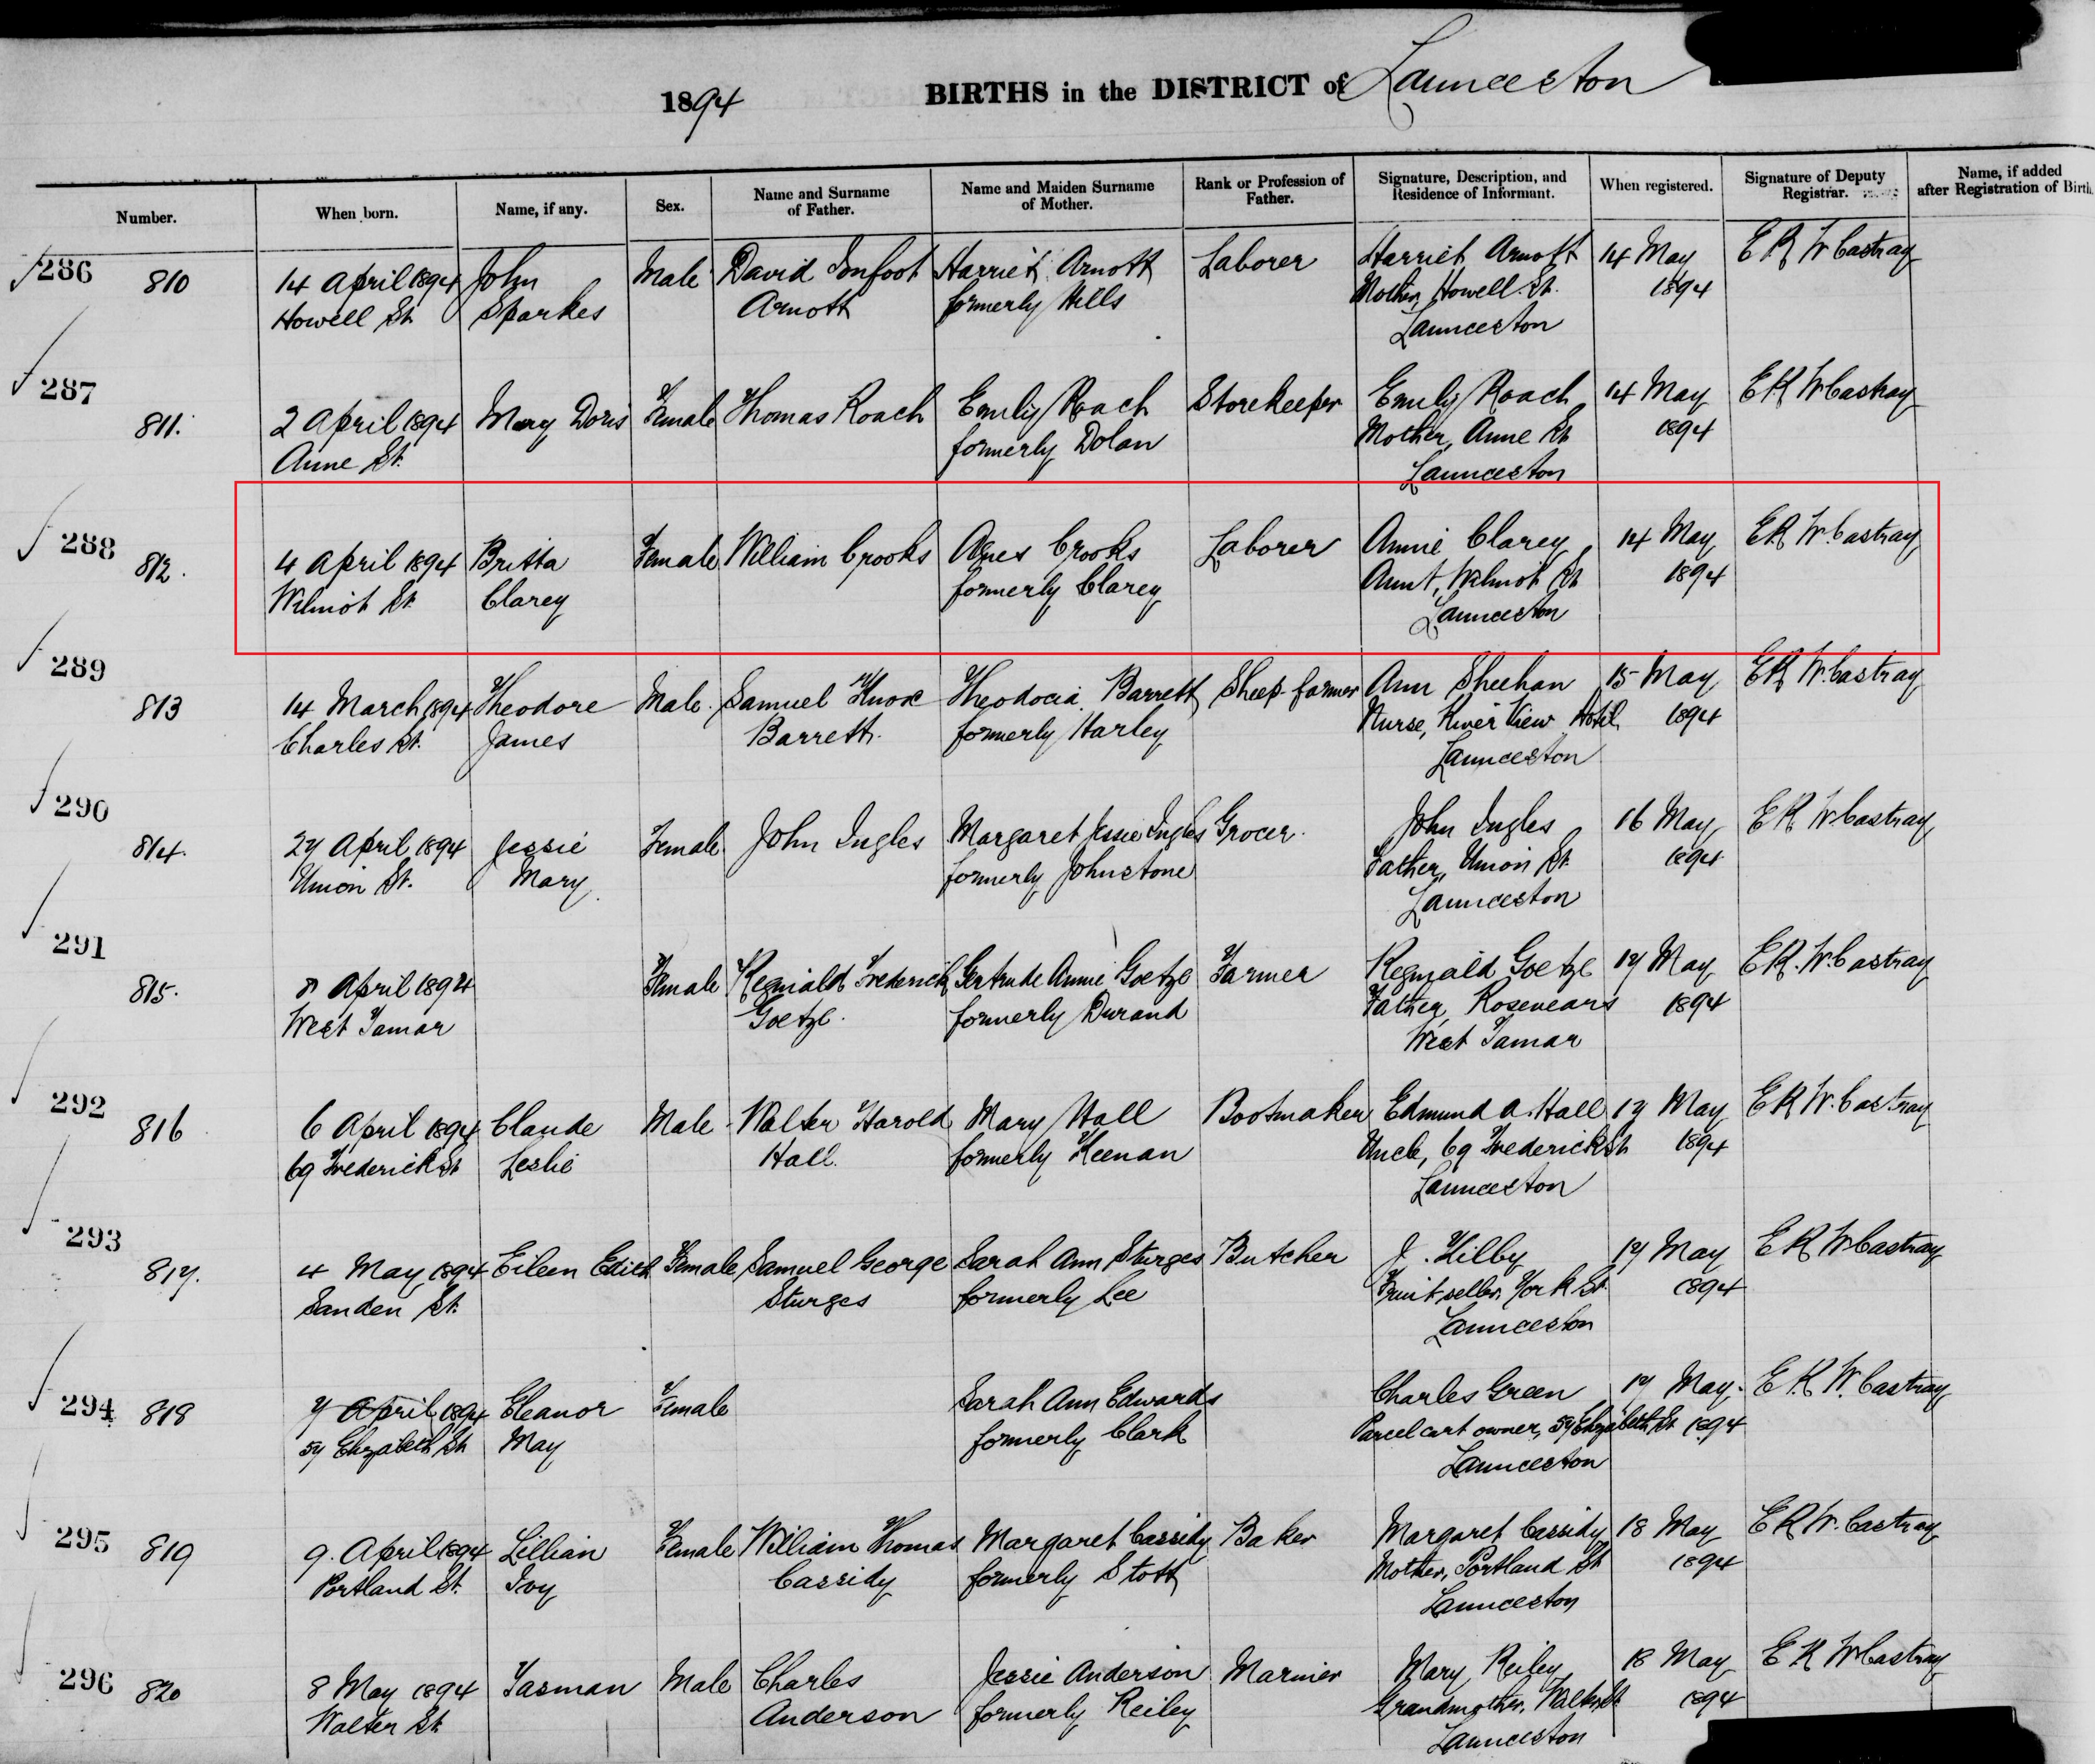 1894 BIRTHS in the DISTRICT of Launceston
Number. When born. Name, if any. Sex. Name and Surname of Father. Name and Maiden Surname of Mother. Rank or Profession of Father. Signature, Description, and Residence of Informant. When registered. Signature of Deputy Registrar. Name, if added after Registration of Birth.
286 810 14 April 1894 John Male David Harriet Arnott Laborer Harriet Arnott 14 May E R W Castray
Howell St. Sparkes Arnott formerly Hills Mother, Howell St. 1894
Launceston
287 811. 2 April 1894 Mary Doris Female Thomas Roach Emily Roach Storekeeper Emily Roach 14 May E R W Castray
Anne St. formerly Dolan Mother, Anne St 1894
Launceston
288 812. 4 April 1894 Britta Female William Crooks Agnes Crooks Laborer Annie Clarey 14 May E R W. Castray
Wilmot St. Clarey formerly Clarey Aunt, Wilmot St 1894
Launceston
289 813 14 March 1894 Theodore Male. Samuel Knox Theodocia Barrett Sheep farmer Ann Sheehan 15 May E R W. Castray
Charles St. James Barrett. formerly Harley Nurse, River View Hotel 1894
Launceston
290 814. 27 April 1894 Jessie Female John Ingles Margaret Jessie Ingles Grocer. John Ingles 16 May E R W Castray
Union St. Mary formerly Johnstone Father, Union St. 1894
Launceston
291 815. 8 April 1894 Female Reginald Frederick Gertrude Annie Goetze Farmer Reginald Goetze 17 May E R. W. Castray
West Tamar Goetze. formerly Durand Father, Rosevears 1894
West Tamar
292 816 6 April 1894 Claude Male Walter Harold Mary Hall Bootmaker Edmund A. Hall 17 May E R W. Castray
69 Frederick St Leslie Hall. formerly Keenan Uncle, 69 Frederick St 1894
Launceston
293 817. 4 May 1894 Eileen Edith Female Samuel George Sarah Ann Sturges Butcher J. Hilby 17 May E R W Castray
Sanden St. Sturges formerly Lee Fruit seller, York St. 1894
Launceston
294 818 7 April 1894 Eleanor Female Sarah Ann Edwards Charles Green 17 May. E. R. W. Castray
57 Elizabeth St May formerly Clark Parcel cart owner, 57 Elizabeth St 1894
Launceston
295 819 9. April 1894 Lillian Female William Thomas Margaret Cassidy Baker Margaret Cassidy 18 May E R W. Castray
Portland St. Ivy Cassidy formerly Stott Mother, Portland St 1894
Launceston
296 820 8 May 1894 Tasman Male Charles Jessie Anderson Mariner Mary Reiley 18 May E R W Castray
Walter St. Anderson formerly Reiley Grandmother, Walter St. 1894
Launceston